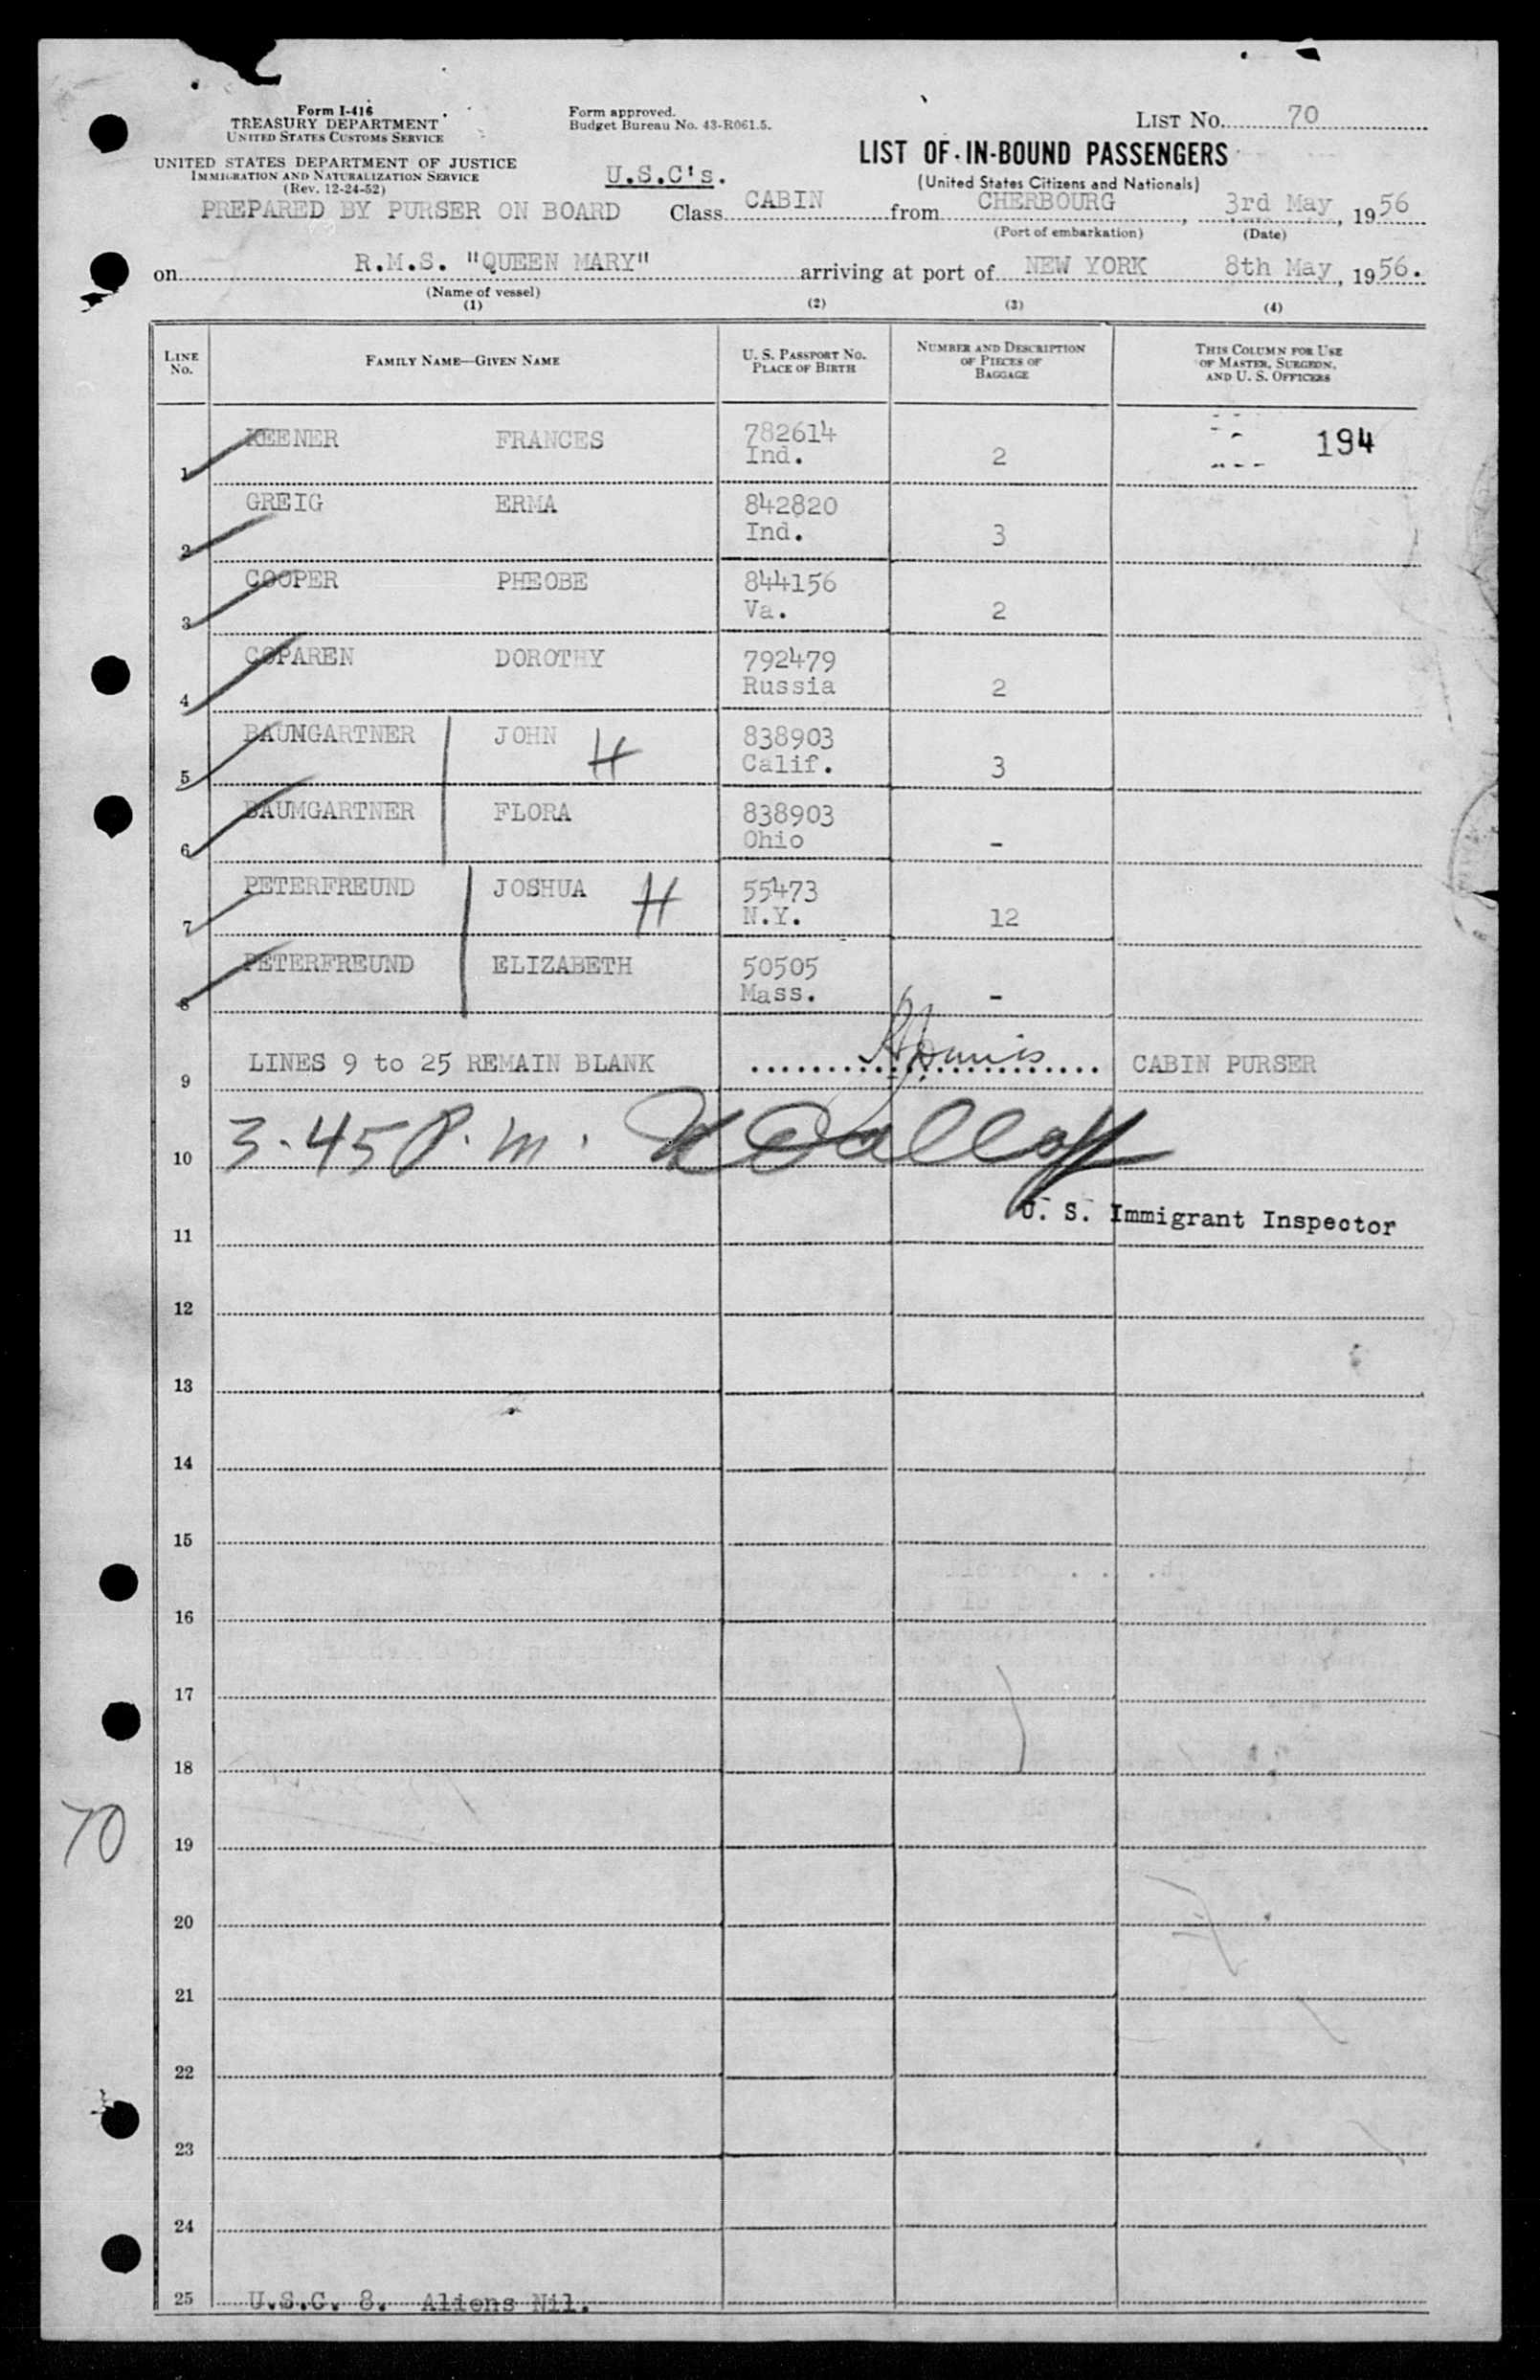 Form I-416
TREASURY DEPARTMENT
UNITED STATES CUSTOMS SERVICE
UNITED STATES DEPARTMENT OF JUSTICE
IMMIGRATION AND NATURALIZATION SERVICE
(Rev. 12-24-52)
PREPARED BY PURSER ON BOARD
Form approved.
Budget Bureau No. 43-R061.5.
U.S.C's.
LIST No. 70
LIST OF IN-BOUND PASSENGERS
(United States Citizens and Nationals)
Class CABIN from CHERBOURG, 3rd May, 1956
(Port of embarkation) (Date)
on R.M.S. "QUEEN MARY" arriving at port of NEW YORK 8th May, 1956.
(Name of vessel)
(1) (2) (3) (4)
LINE No. FAMILY NAME—GIVEN NAME U. S. PASSPORT No. PLACE OF BIRTH NUMBER AND DESCRIPTION OF PIECES OF BAGGAGE THIS COLUMN FOR USE OF MASTER, SURGEON, AND U. S. OFFICERS
1 KEENER FRANCES 782614 Ind. 2 194
2 GREIG ERMA 842820 Ind. 3
3 COOPER PHEOBE 844156 Va. 2
4 COPAREN DOROTHY 792479 Russia 2
5 BAUNGARTNER JOHN H 838903 Calif. 3
6 BAUMGARTNER FLORA 838903 Ohio -
7 PETERFREUND JOSHUA H 55473 N.Y. 12
8 PETERFREUND ELIZABETH 50505 Mass. -
9 LINES 9 to 25 REMAIN BLANK CABIN PURSER
10 3.45 P.m.
U. S. Immigrant Inspector
11
12
13
14
15
16
17
18
70
19
20
21
22
23
24
25 U.S.C. 8. Aliens Nil.